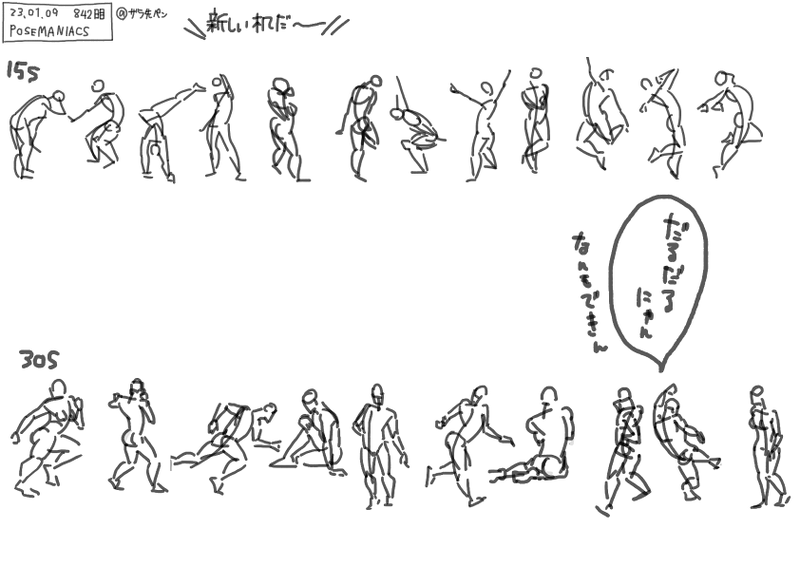 23.01.09 842日目
POSEMANIACS
@ザラ先ペン
新しい机だ〜
15s
だるだる
にゃん
なんもできん
30s